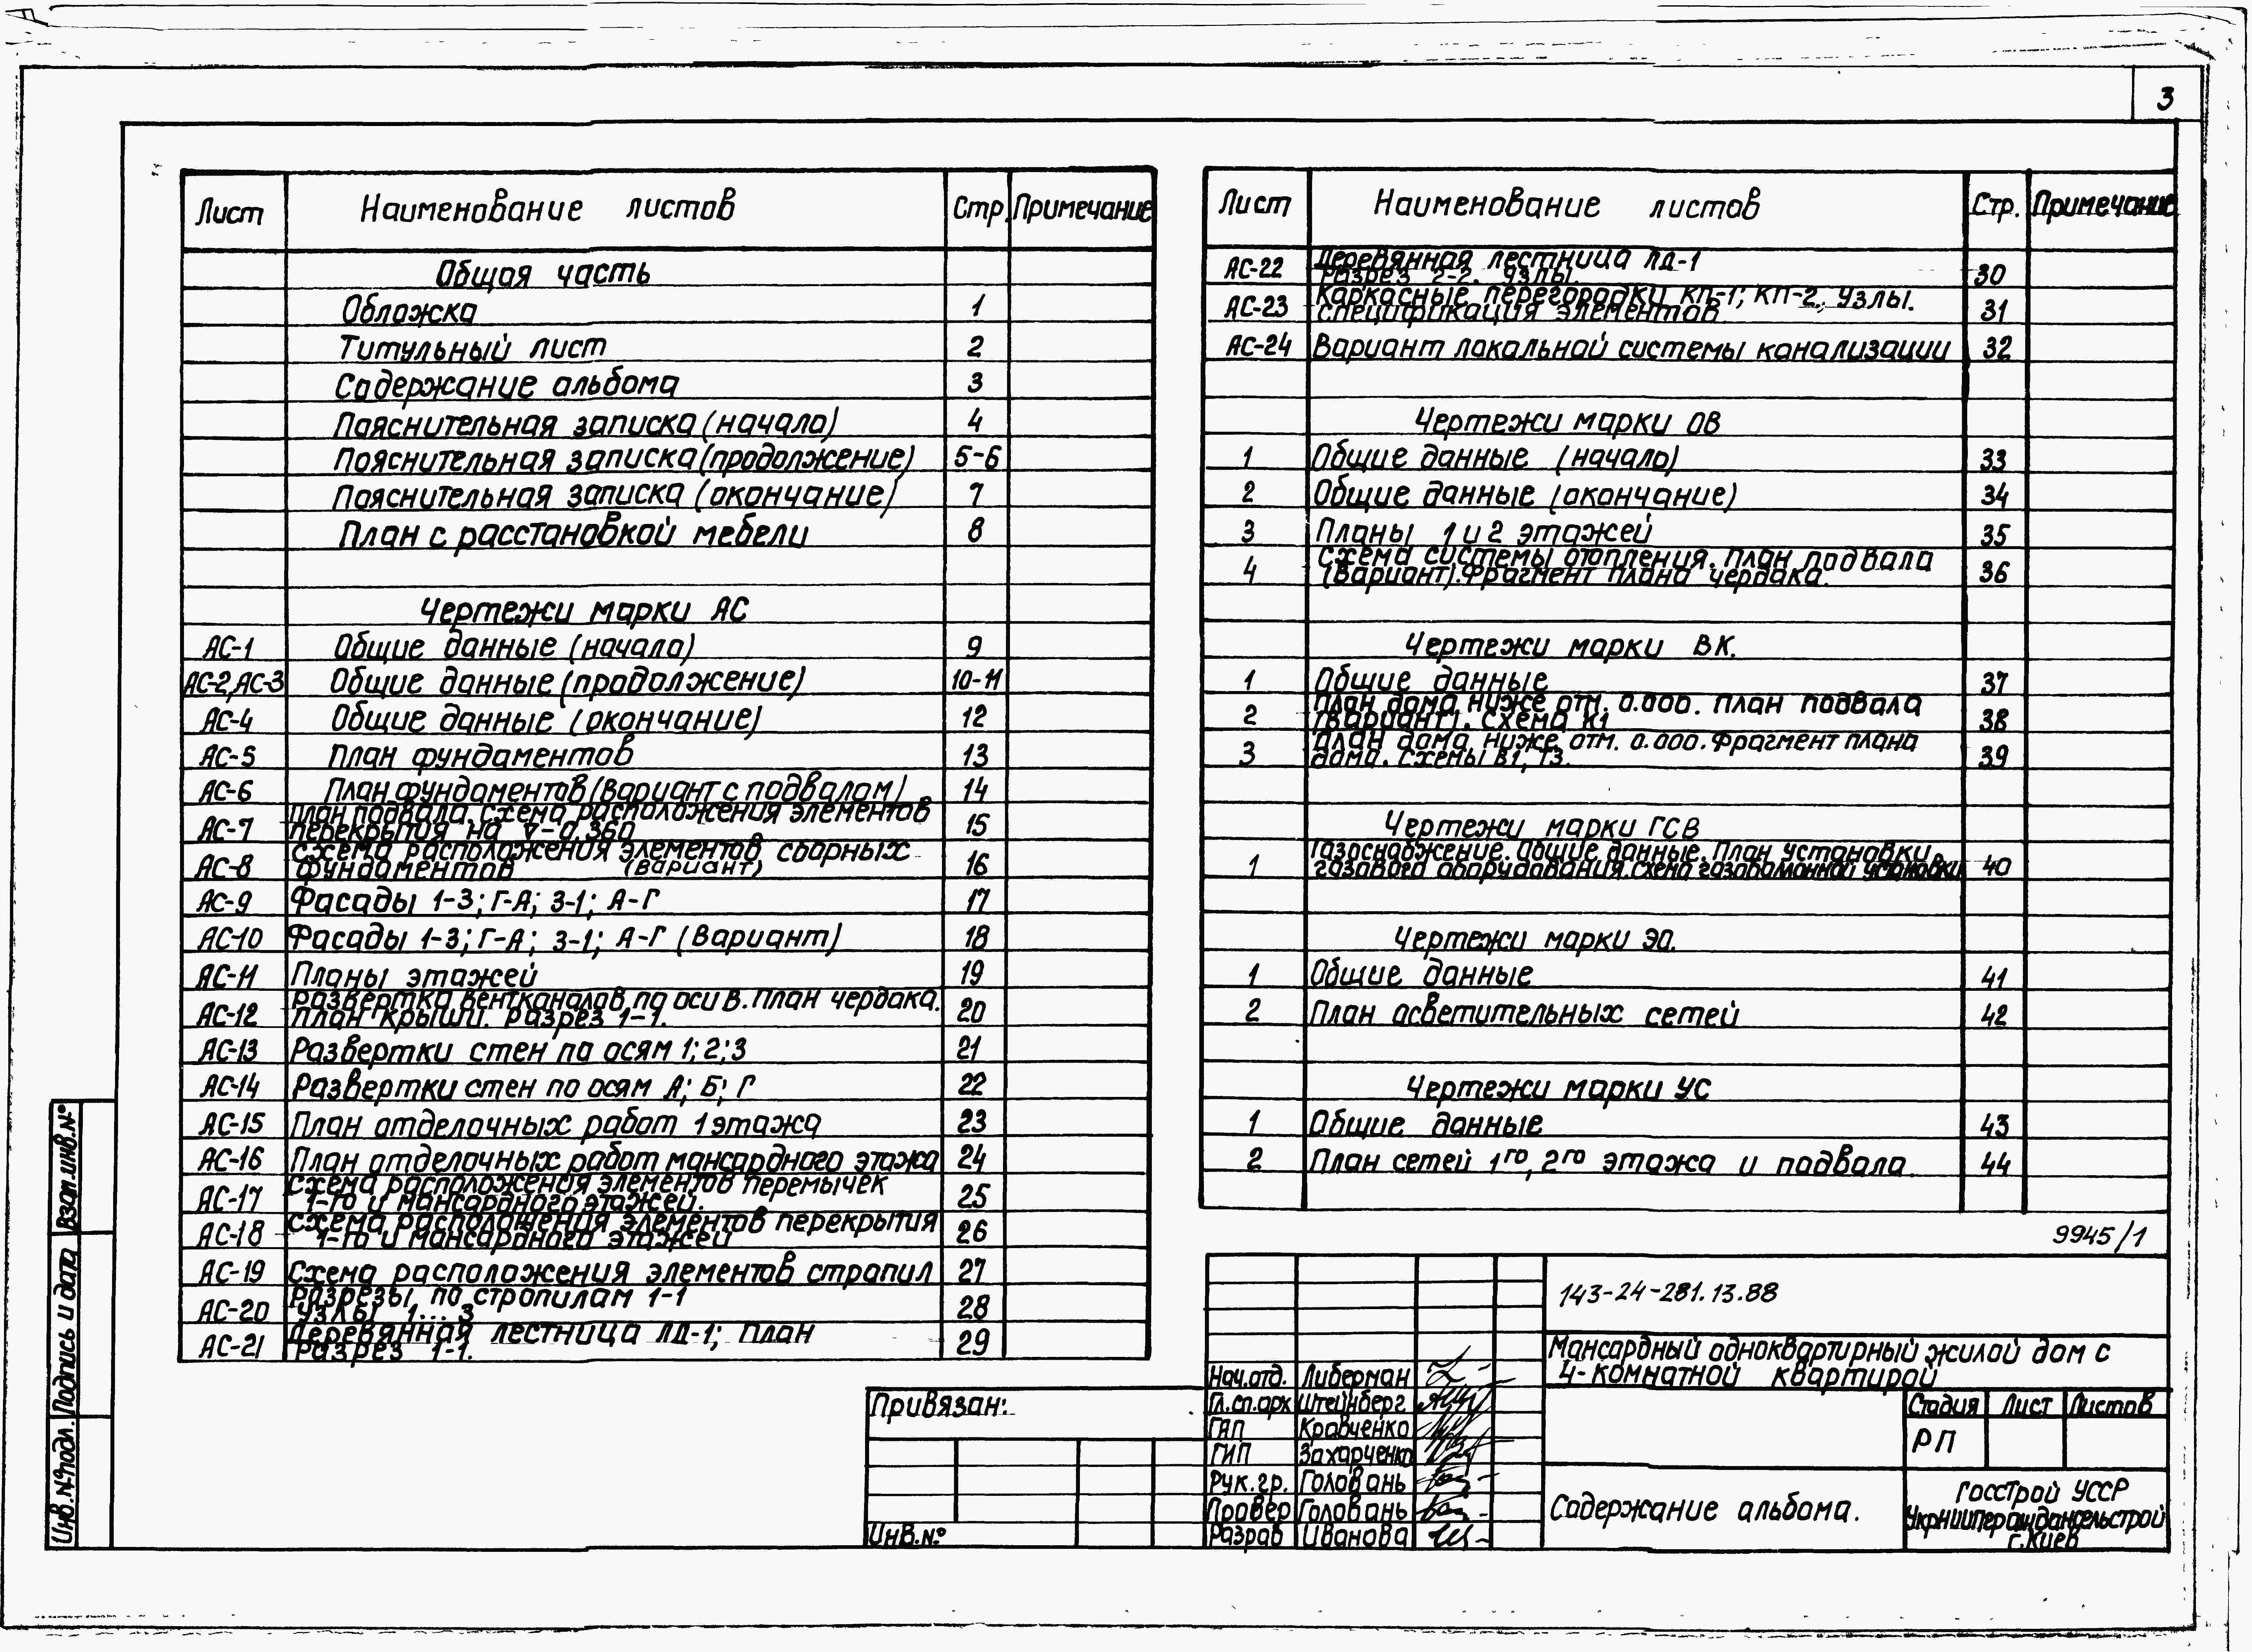 3
Лист Наименование листов Стр. Примечание
Общая часть
Обложка 1
Титульный лист 2
Содержание альбома 3
Пояснительная записка (начало) 4
Пояснительная записка (продолжение) 5-6
Пояснительная записка (окончание) 7
План с расстановкой мебели 8
Чертежи марки АС
АС-1 Общие данные (начало) 9
АС-2, АС-3 Общие данные (продолжение) 10-11
АС-4 Общие данные (окончание) 12
АС-5 План фундаментов 13
АС-6 План фундаментов (Вариант с подвалом) 14
АС-7 План подвала. Схема расположения элементов
перекрытия на ∇-0.360 15
АС-8 Схема расположения элементов сборных
фундаментов (Вариант) 16
АС-9 Фасады 1-3; Г-А; 3-1; А-Г 17
АС-10 Фасады 1-3; Г-А; 3-1; А-Г (Вариант) 18
АС-11 Планы этажей 19
АС-12 Развертка вентканалов по оси В. План чердака.
План крыши. Разрез 1-1. 20
АС-13 Развертки стен по осям 1; 2; 3 21
АС-14 Развертки стен по осям А; Б; Г 22
АС-15 План отделочных работ 1 этажа 23
АС-16 План отделочных работ мансардного этажа 24
АС-17 Схема расположения элементов перемычек
1-го и мансардного этажей. 25
АС-18 Схема расположения элементов перекрытия
1-го и мансардного этажей 26
АС-19 Схема расположения элементов стропил 27
АС-20 Разрезы по стропилам 1-1
Узлы 1...3 28
АС-21 Деревянная лестница ЛД-1; План
Разрез 1-1. 29
Лист Наименование листов Стр. Примечание
АС-22 Деревянная лестница ЛД-1
Разрез 2-2. Узлы. 30
АС-23 Каркасные перегородки КП-1; КП-2; Узлы.
Спецификация элементов 31
АС-24 Вариант локальной системы канализации 32
Чертежи марки ОВ
1 Общие данные (начало) 33
2 Общие данные (окончание) 34
3 Планы 1 и 2 этажей 35
4 Схема системы отопления. План подвала
(Вариант). Фрагмент плана чердака. 36
Чертежи марки ВК.
1 Общие данные 37
2 План дома ниже отм. 0.000. План подвала
(Вариант). Схема К1 38
3 План дома ниже отм. 0.000. Фрагмент плана
дома. Схемы В1, Т3. 39
Чертежи марки ГСВ
1 Газоснабжение. Общие данные. План установки
газового оборудования. Схема газобаллонной установки 40
Чертежи марки ЭО.
1 Общие данные 41
2 План осветительных сетей 42
Чертежи марки УС
1 Общие данные 43
2 План сетей 1го, 2го этажа и подвала. 44
9945/1
143-24-281.13.88
Мансардный одноквартирный жилой дом с
4-комнатной квартирой
Нач.отд. Либерман
Гл.сп.арх Штейнберг
ГАП Кравченко
ГИП Захарченко
Рук.гр. Головань
Провер Головань
Разраб Иванова
Стадия Лист Листов
РП
Содержание альбома.
Госстрой УССР
УкрНИИПграждансельстрой
г.Киев
Привязан:
Инв.№
Взам.инв.№
Подпись и дата
Инв.№подл.